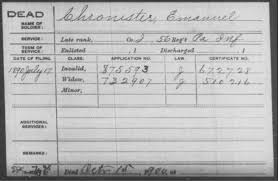 DEAD
NAME OF SOLDIER: Chronister, Emanuel
SERVICE: Late rank, Co. I, 56 Reg't Pa Inf
TERM OF SERVICE: Enlisted , 1 Discharged , 1
DATE OF FILING. CLASS. APPLICATION NO. LAW. CERTIFICATE NO.
1890 July 17 Invalid, 875593 J 672728
Widow, 732907 J 510216
Minor,
ADDITIONAL SERVICES:
REMARKS:
Died Oct 1900